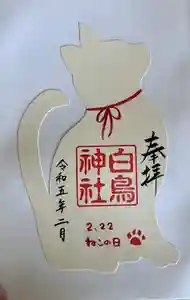 奉拝
白鳥
神社
令和五年二月
2.22
ねこの日